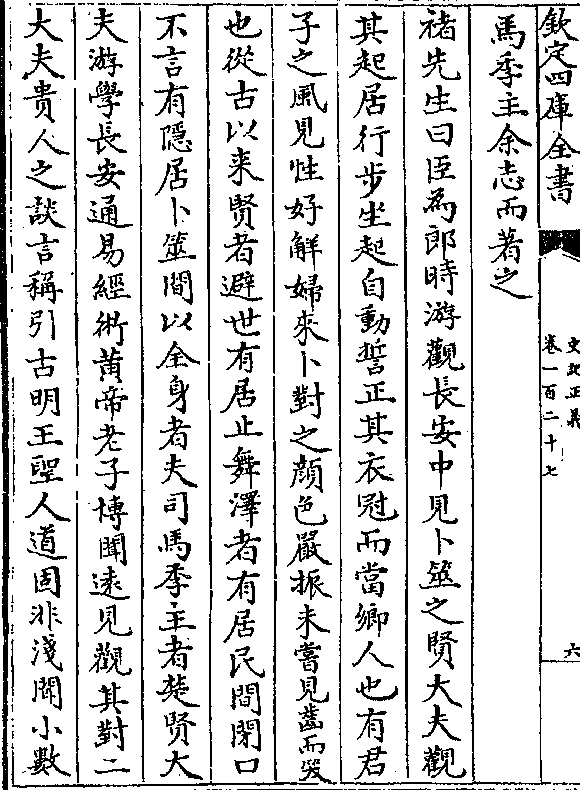 欽定四庫全書
史記正義
卷一百二十七
六
馬季主余志而著之
褚先生曰臣為郎時游觀長安中見卜筮之賢大夫觀
其起居行步坐起自動誓正其衣冠而當鄉人也有君
子之風見性好解婦來卜對之顔色嚴振未嘗見齒而笑
也從古以来賢者避世有居止舞澤者有居民間閉口
不言有隱居卜筮間以全身者夫司馬季主者楚賢大
夫游學長安通易經術黄帝老子博聞逺見觀其對二
大夫貴人之談言稱引古明王聖人道固非淺聞小數